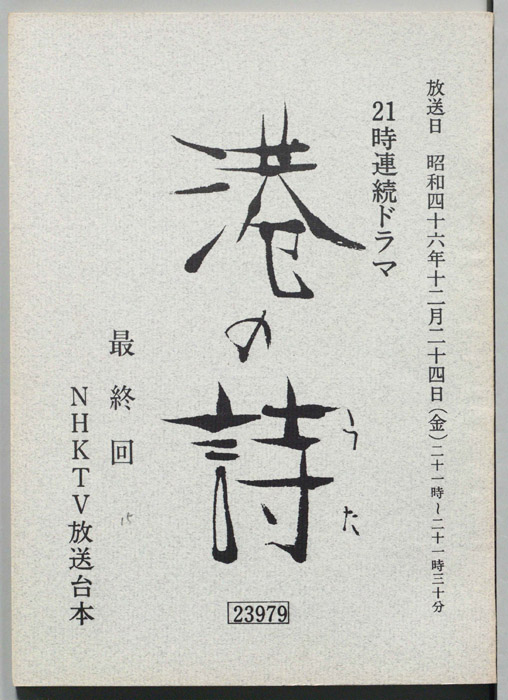 放送日 昭和四十六年十二月二十四日(金)二十一時~二十一時三十分
21時連続ドラマ
港の詩
うた
最終回
15
NHKTV放送台本
23979